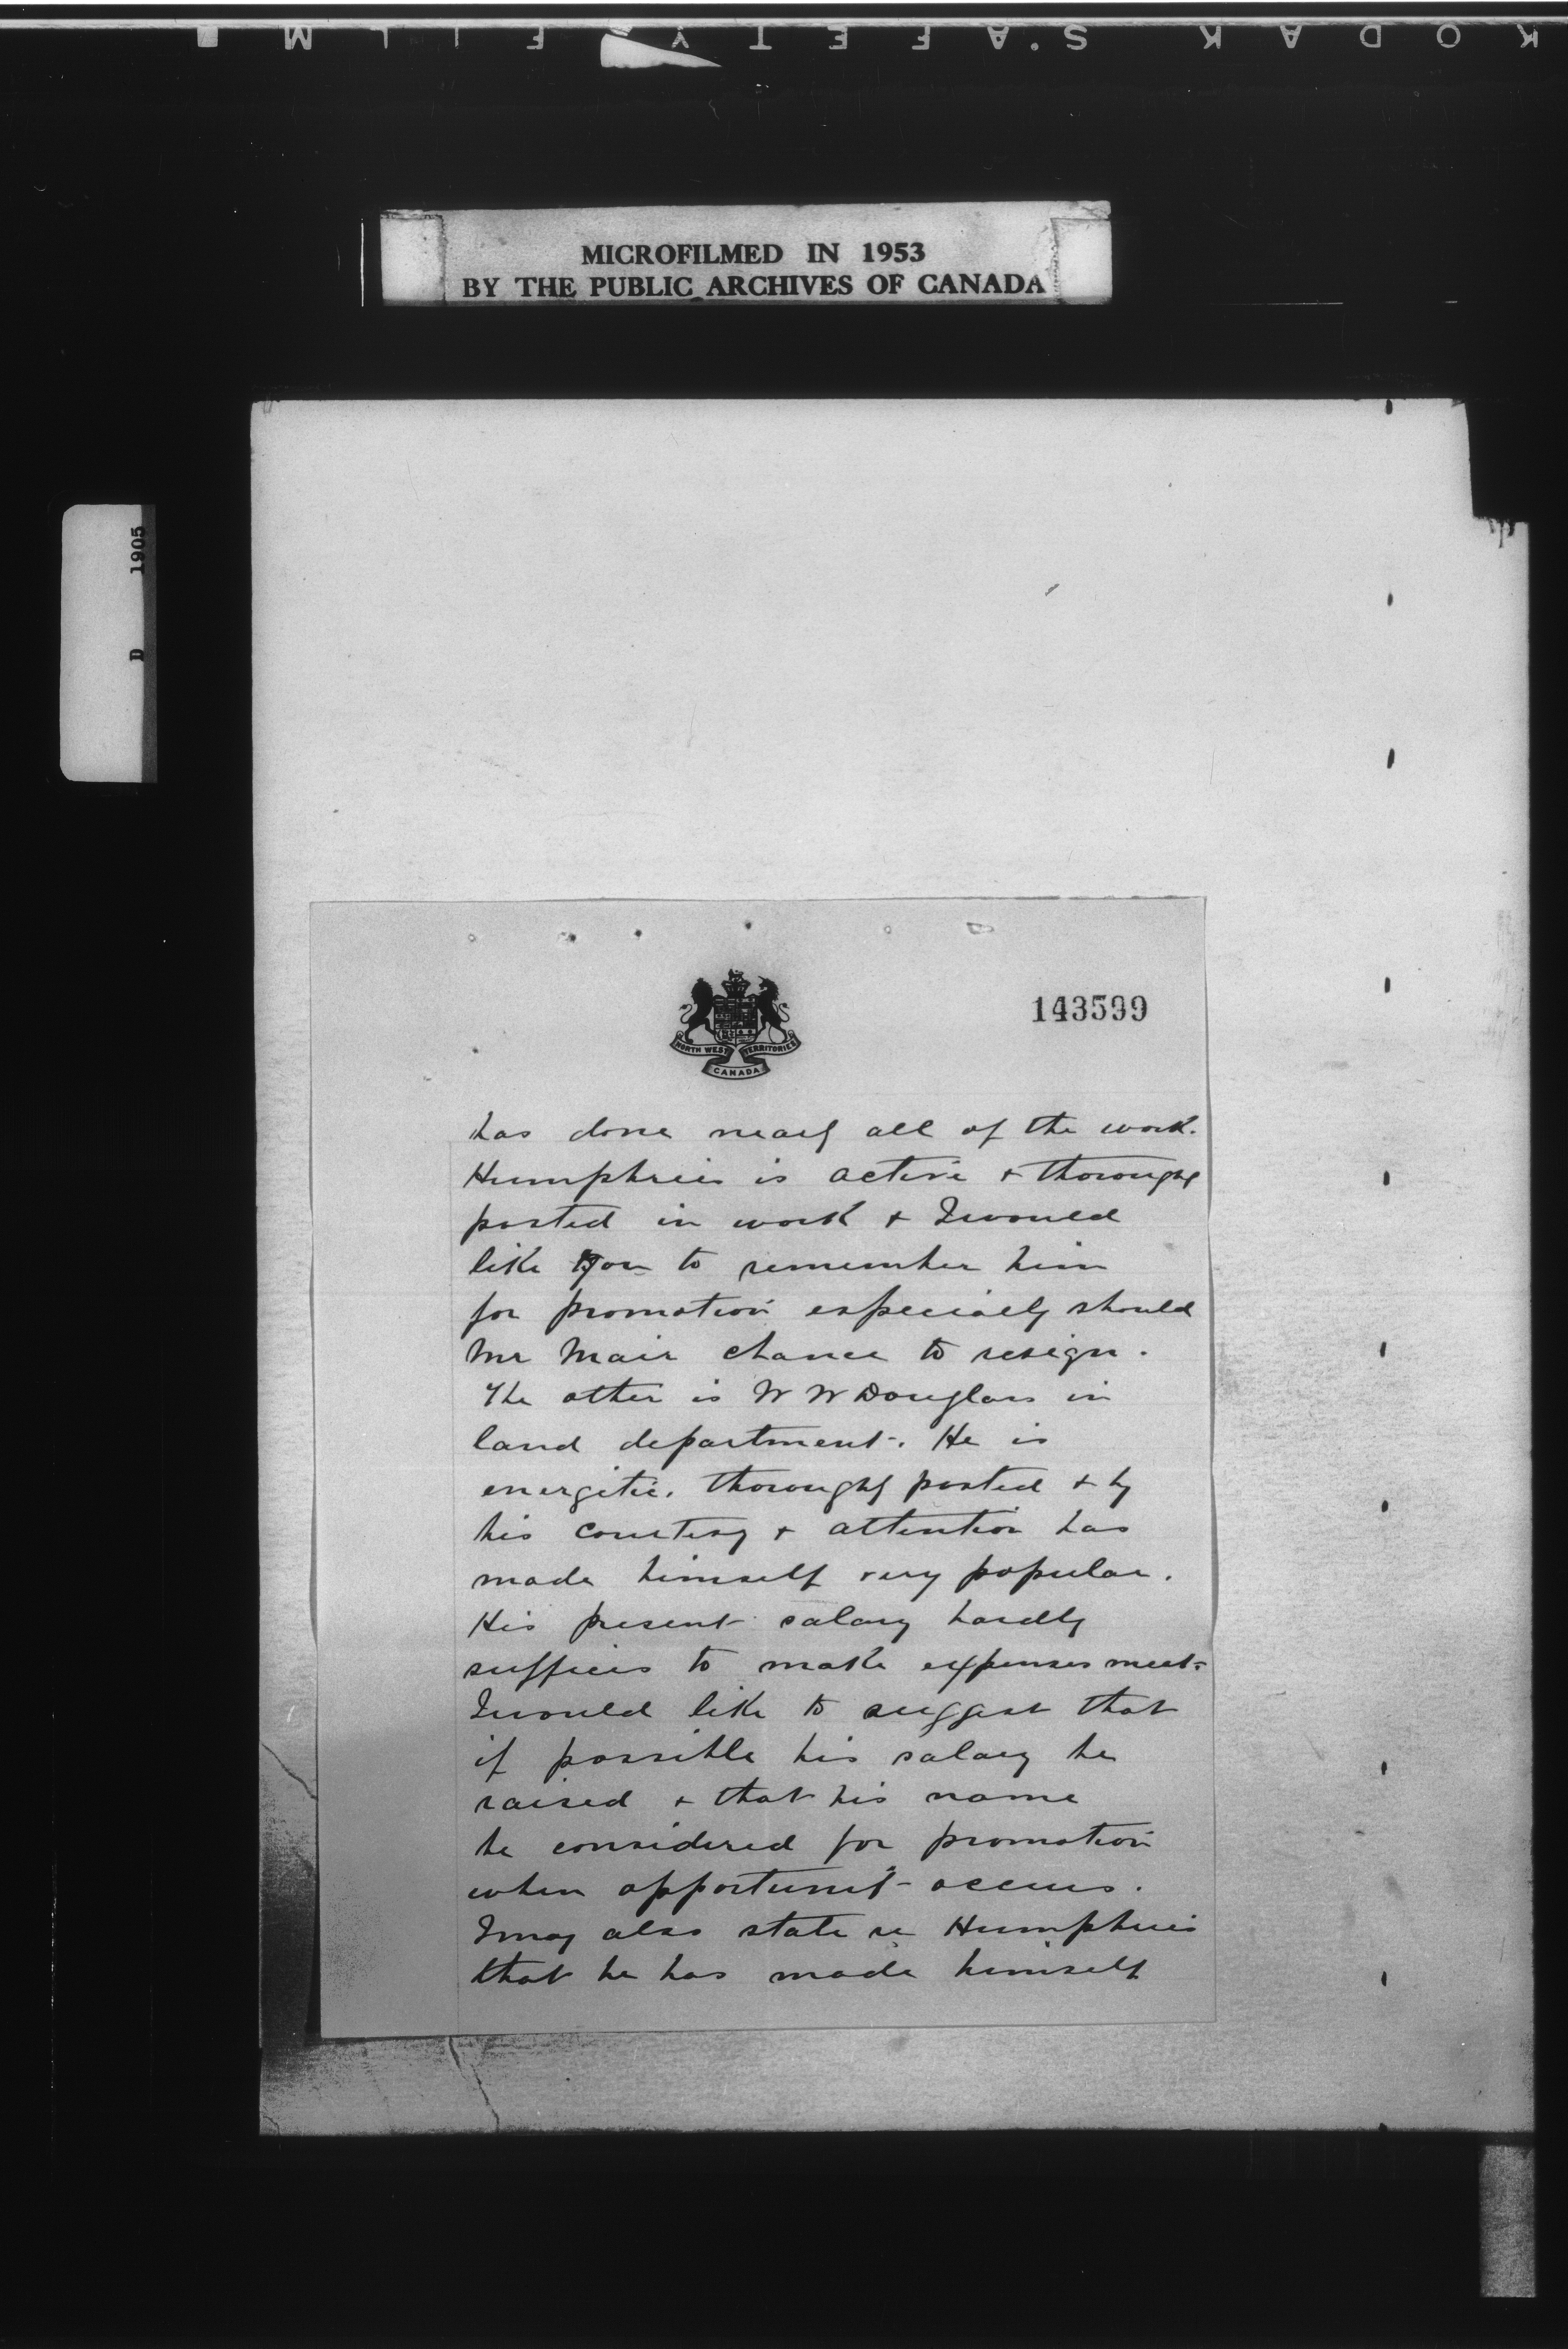 KODAK SAFETY FILM
MICROFILMED IN 1953
BY THE PUBLIC ARCHIVES OF CANADA
1905
D
143599
NORTH WEST TERRITORIES
CANADA
has done nearly all of the work.
Humphries is active + thoroughly
posted in work + I would
like you to remember him
for promotion especially should
Mr Mair chance to resign.
The other is W W Douglass in
land department. He is
energetic, thoroughly posted + by
his courtesy + attention has
made himself very popular.
His present salary hardly
suffices to make expenses meet.
I would like to suggest that
if possible his salary be
raised + that his name
be considered for promotion
when opportunity occurs.
I may also state re Humphries
that he has made himself